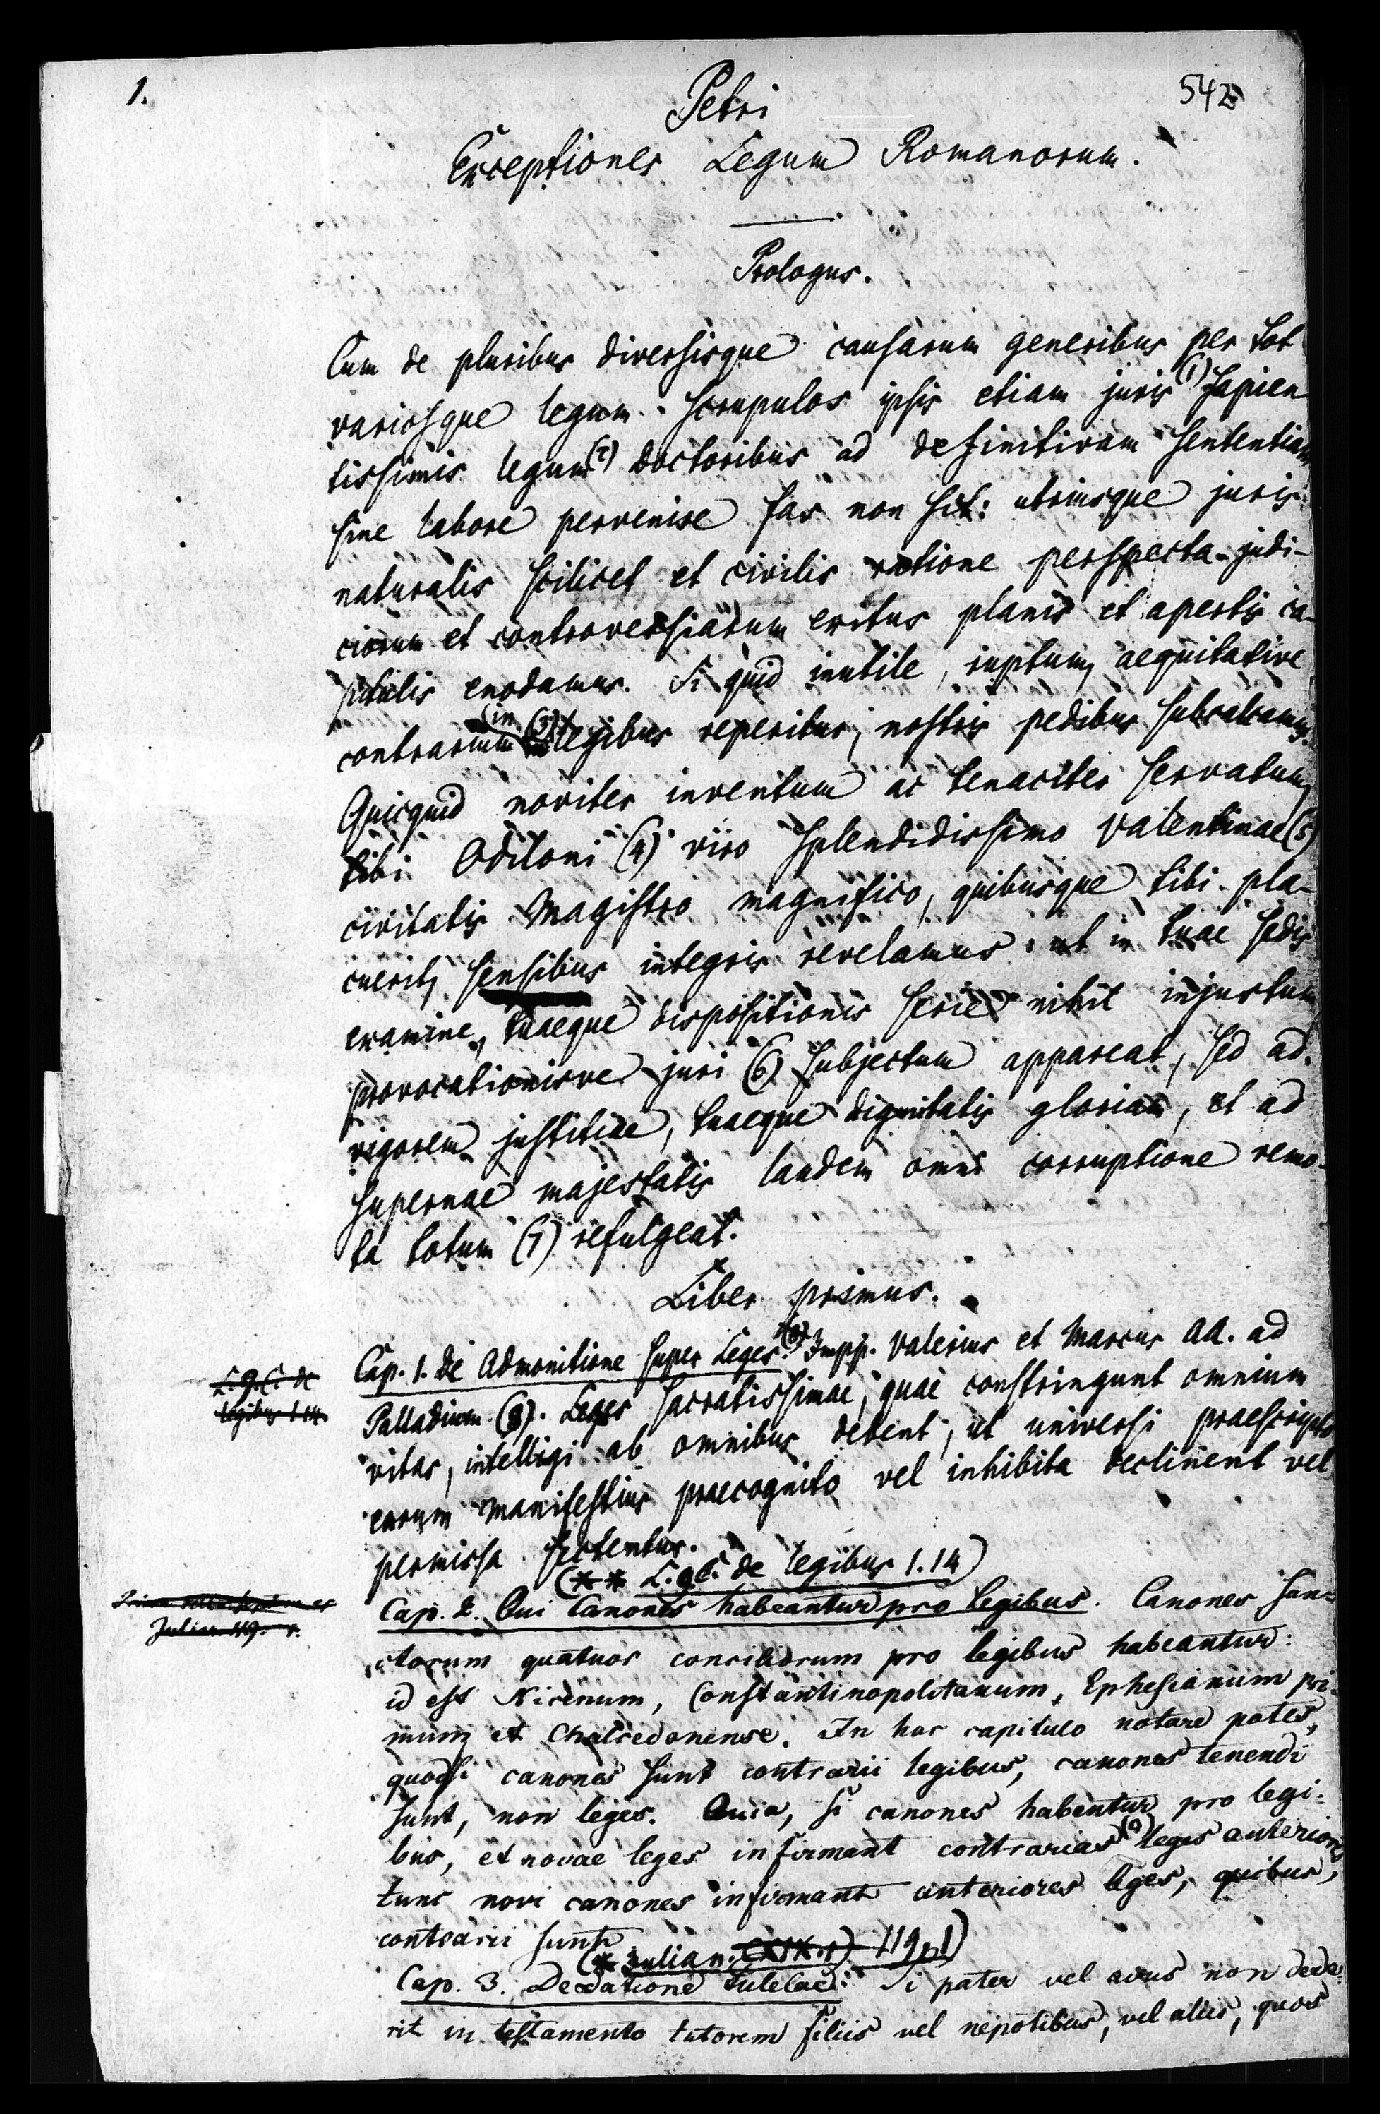 1.
542
Petri
Exceptiones Legum Romanorum.
Prologus.
Cum de pluribus diversisque causarum generibus per tot
variosque legum scrupulos ipsis etiam juris (1) sapien
tissimis legum (2) doctoribus ad definitivam sententiam
sine labore pervenire fas non sit: utriusque juris
naturalis scilicet et civilis ratione perspecta judi-
ciorum et controversiarum exitus planis et apertis ca-
pitulis enodamus. Si quid inutile, ruptum, aequitative
contrarium in (3) legibus reperitur, nostris pedibus subcalcamus.
Quicquid noviter inventum ac tenaciter servatum,
tibi Odiloni (4) viro splendidissimo Valentinae (5)
civitatis Magistro magnifico, quibusque tibi pla-
cuerit, sensibus integris revelamus. ut in tuae sedis
examine, tuaeque dispositionis serie nihil injustum
provocationisve juri (6) subjectum appareat, sed ad
vigorem justitiae, tuaeque dignitatis gloriam, et ad
supernae majestatis laudem omni corruptione remo-
ta totum (7) refulgeat.
Liber primus.
Cap. 1. de Admonitione super Leges. (8) Impp. Valerius et Marcus AA. ad
L. 9. C. de
legibus 1.14.
Palladium (8). Leges sacratissimae, quae constringunt omnium
vitas, intelligi ab omnibus debent, ut universi praescripto
earum manifestius praecognito vel inhibita declinent vel
permissa sectentur.
(** L. 9. C. de legibus 1.14)
Julian. 119.
Cap. 2. Qui Canones habeantur pro legibus. Canones san-
ctorum quatuor conciliorum pro legibus habeantur:
id est Nicenum, Constantinopolitanum, Ephesianum pri-
mum et Chalcedonense. In hoc capitulo notare potes,
quodsi canones sunt contrarii legibus, canones tenendi
sunt, non leges. Quia, si canones habentur pro legi-
bus, et novae leges infirmant contrarias (9) leges anteriores,
tunc novi canones infirmant anteriores leges, quibus
contrarii sunt.
(* Julian. 119, 1)
Cap. 3. De datione tutelae. Si pater vel avus non dede-
rit in testamento tutorem filiis vel nepotibus, vel aliis, quos